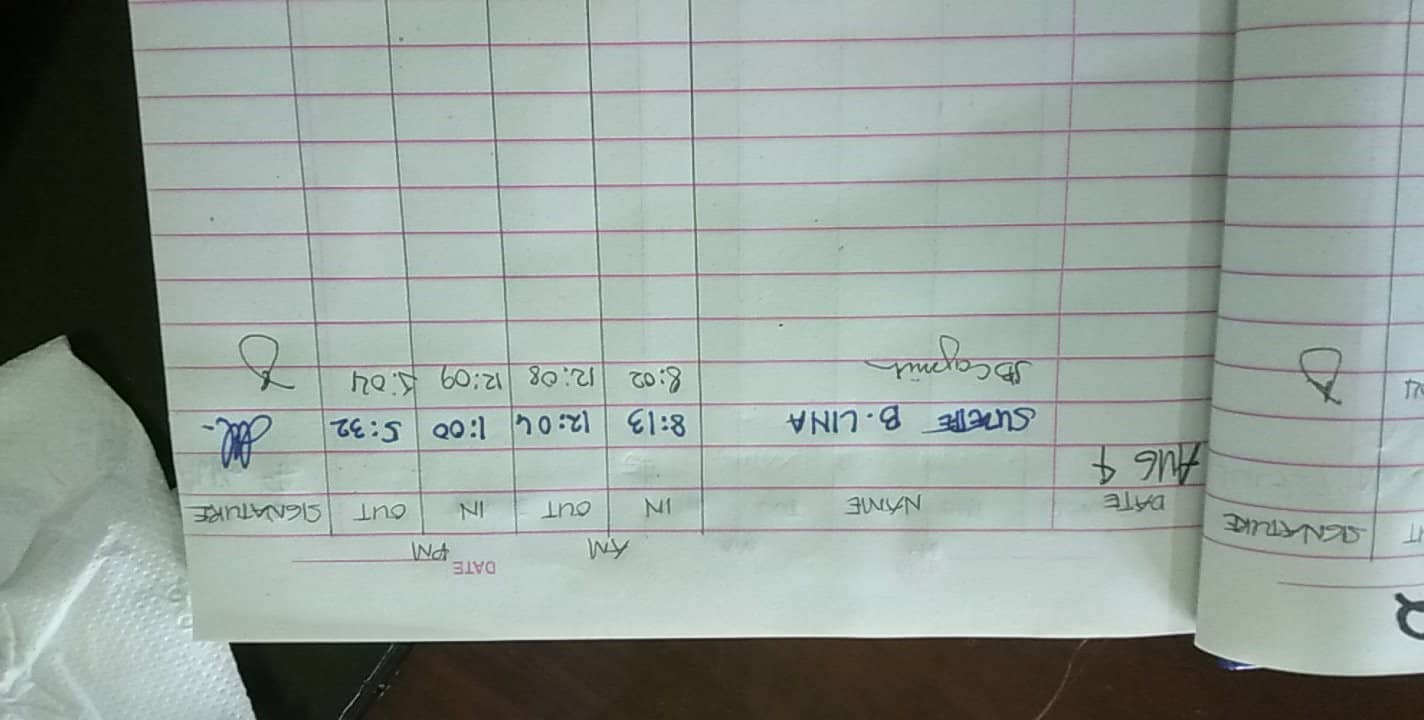 DATE
AM PM
DATE NAME IN OUT IN OUT SIGNATURE
AUG 4
SUZETTE B. LINA 8:13 12:04 1:00 5:32
8:02 12:08 12:09 5:04
SIGNATURE